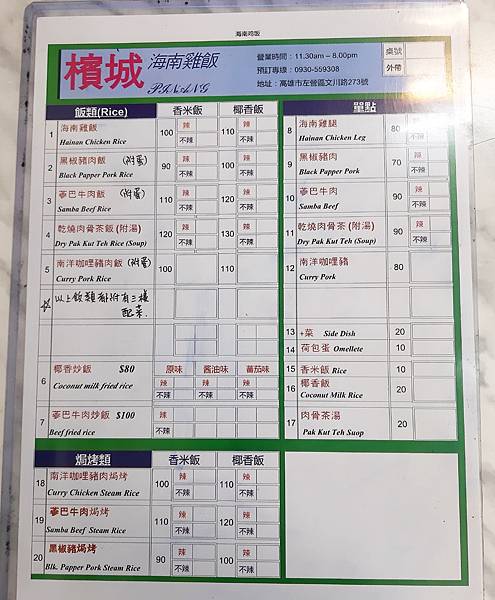 海南鸡饭
檳城 海南雞飯
PINANG
營業時間：11.30am – 8.00pm
預訂專線：0930-559308
地址：高雄市左營區文川路273號
桌號
外帶
飯類(Rice) 香米飯 椰香飯
1 海南雞飯 Hainan Chicken Rice 100 辣 不辣 110 辣 不辣
2 黑椒豬肉飯 (附蛋) Black Papper Pork Rice 90 辣 不辣 100 辣 不辣
3 蔘巴牛肉飯 (附蛋) Samba Beef Rice 110 辣 不辣 120 辣 不辣
4 乾燒肉骨茶飯 (附湯) Dry Pak Kut Teh Rice (Soup) 120 辣 不辣 130 辣 不辣
5 南洋咖哩豬肉飯 (附蛋) Curry Pork Rice 100 110
☆ 以上飯類都附有三樣
配菜
6 椰香炒飯 $80 Coconut milk fried rice 原味 酱油味 蕃茄味 辣 不辣 辣 不辣 辣 不辣
7 蔘巴牛肉炒飯 $100 Beef fried rice 辣 不辣
單點
8 海南雞腿 Hainan Chicken Leg 80 辣 不辣
9 黑椒豬肉 Black Papper Pork 70 辣 不辣
10 蔘巴牛肉 Samba Beef 90 辣 不辣
11 乾燒肉骨茶 (附湯) Dry Pak Kut Teh (Soup) 90 辣 不辣
12 南洋咖哩豬 Curry Pork 80
13 +菜 Side Dish 20
14 荷包蛋 Omellete 10
15 香米飯 Rice 10
16 椰香飯 Coconut Milk Rice 20
17 肉骨茶湯 Pak Kut Teh Suop 20
焗烤類 香米飯 椰香飯
18 南洋咖哩豬肉焗烤 Curry Chicken Steam Rice 100 辣 不辣 110 辣 不辣
19 蔘巴牛肉焗烤 Samba Beef Steam Rice 110 辣 不辣 120 辣 不辣
20 黑椒豬焗烤 Blk. Papper Pork Steam Rice 90 辣 不辣 100 辣 不辣